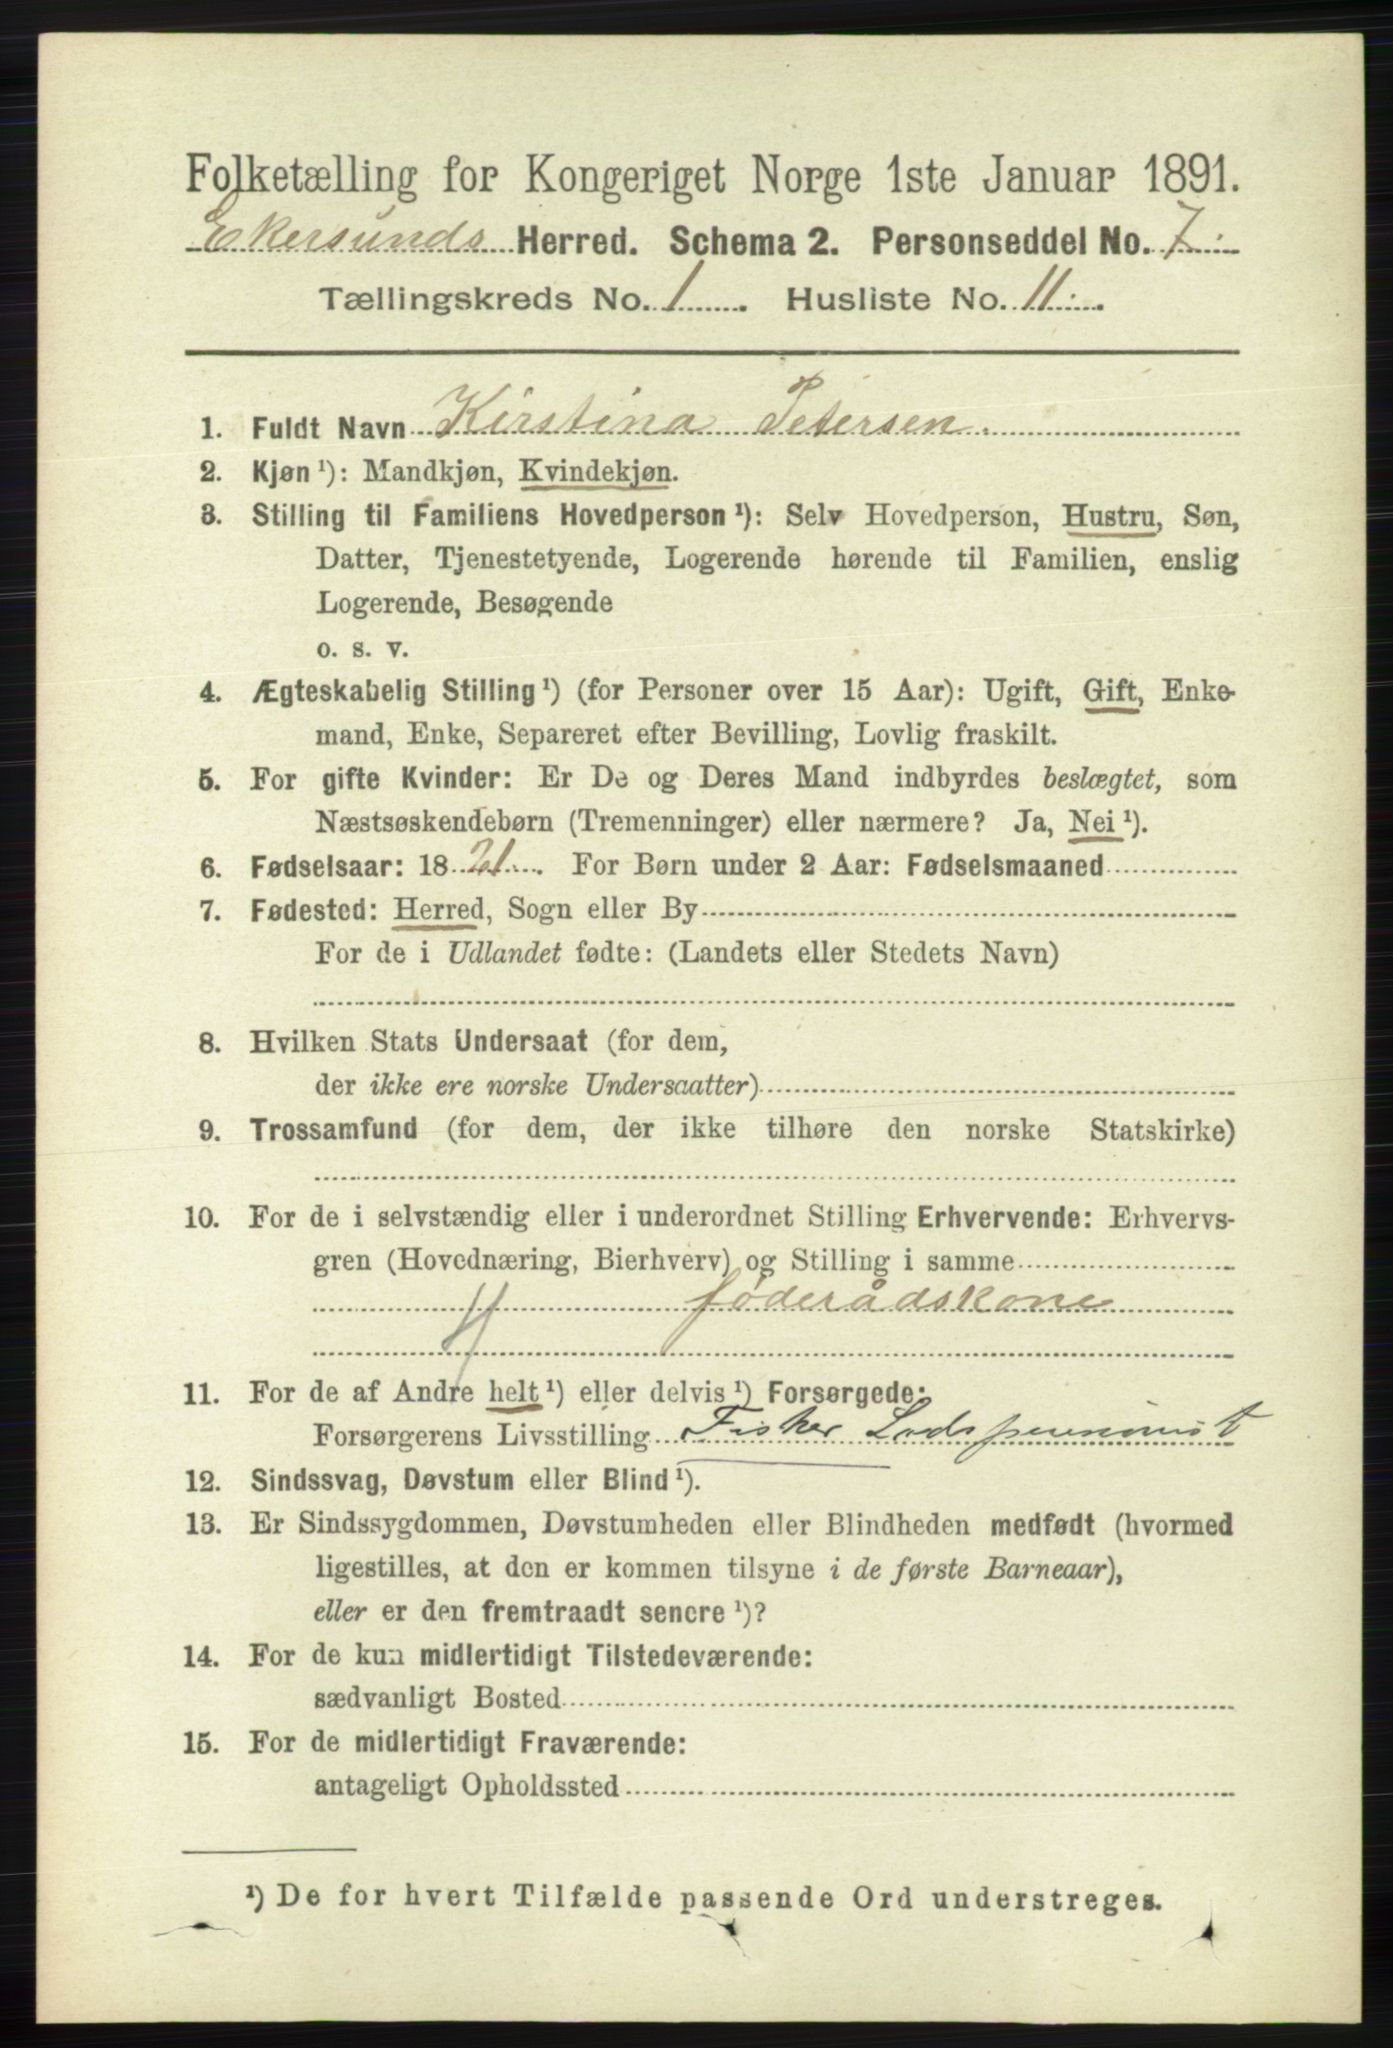 Folketælling for Kongeriget Norge 1ste Januar 1891.
Ekersunds Herred. Schema 2. Personseddel No. 7.
Tællingskreds No. 1. Husliste No. 11.
1. Fuldt Navn Kirstina Petersen.
2. Kjøn ¹): Mandkjøn, Kvindekjøn.
3. Stilling til Familiens Hovedperson ¹): Selv Hovedperson, Hustru, Søn,
Datter, Tjenestetyende, Logerende hørende til Familien, enslig
Logerende, Besøgende
o. s. v.
4. Ægteskabelig Stilling ¹) (for Personer over 15 Aar): Ugift, Gift, Enke-
mand, Enke, Separeret efter Bevilling, Lovlig fraskilt.
5. For gifte Kvinder: Er De og Deres Mand indbyrdes beslægtet, som
Næstsøskendebørn (Tremenninger) eller nærmere? Ja, Nei ¹).
6. Fødselsaar: 1821. For Børn under 2 Aar: Fødselsmaaned
7. Fødested: Herred, Sogn eller By
For de i Udlandet fødte: (Landets eller Stedets Navn)
8. Hvilken Stats Undersaat (for dem,
der ikke ere norske Undersaatter)
9. Trossamfund (for dem, der ikke tilhøre den norske Statskirke)
10. For de i selvstændig eller i underordnet Stilling Erhvervende: Erhvervs-
gren (Hovednæring, Bierhverv) og Stilling i samme
føderådskone
11. For de af Andre helt ¹) eller delvis ¹) Forsørgede:
Forsørgerens Livsstilling Fisker Lodspensionist
12. Sindssvag, Døvstum eller Blind ¹).
13. Er Sindssygdommen, Døvstumheden eller Blindheden medfødt (hvormed
ligestilles, at den er kommen tilsyne i de første Barneaar),
eller er den fremtraadt senere ¹)?
14. For de kun midlertidigt Tilstedeværende:
sædvanligt Bosted
15. For de midlertidigt Fraværende:
antageligt Opholdssted
¹) De for hvert Tilfælde passende Ord understreges.